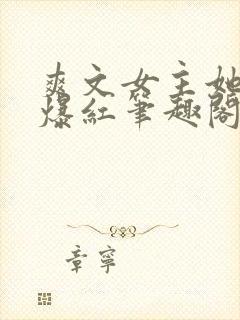 爽文女主她
爆红笔趣阁
章宁